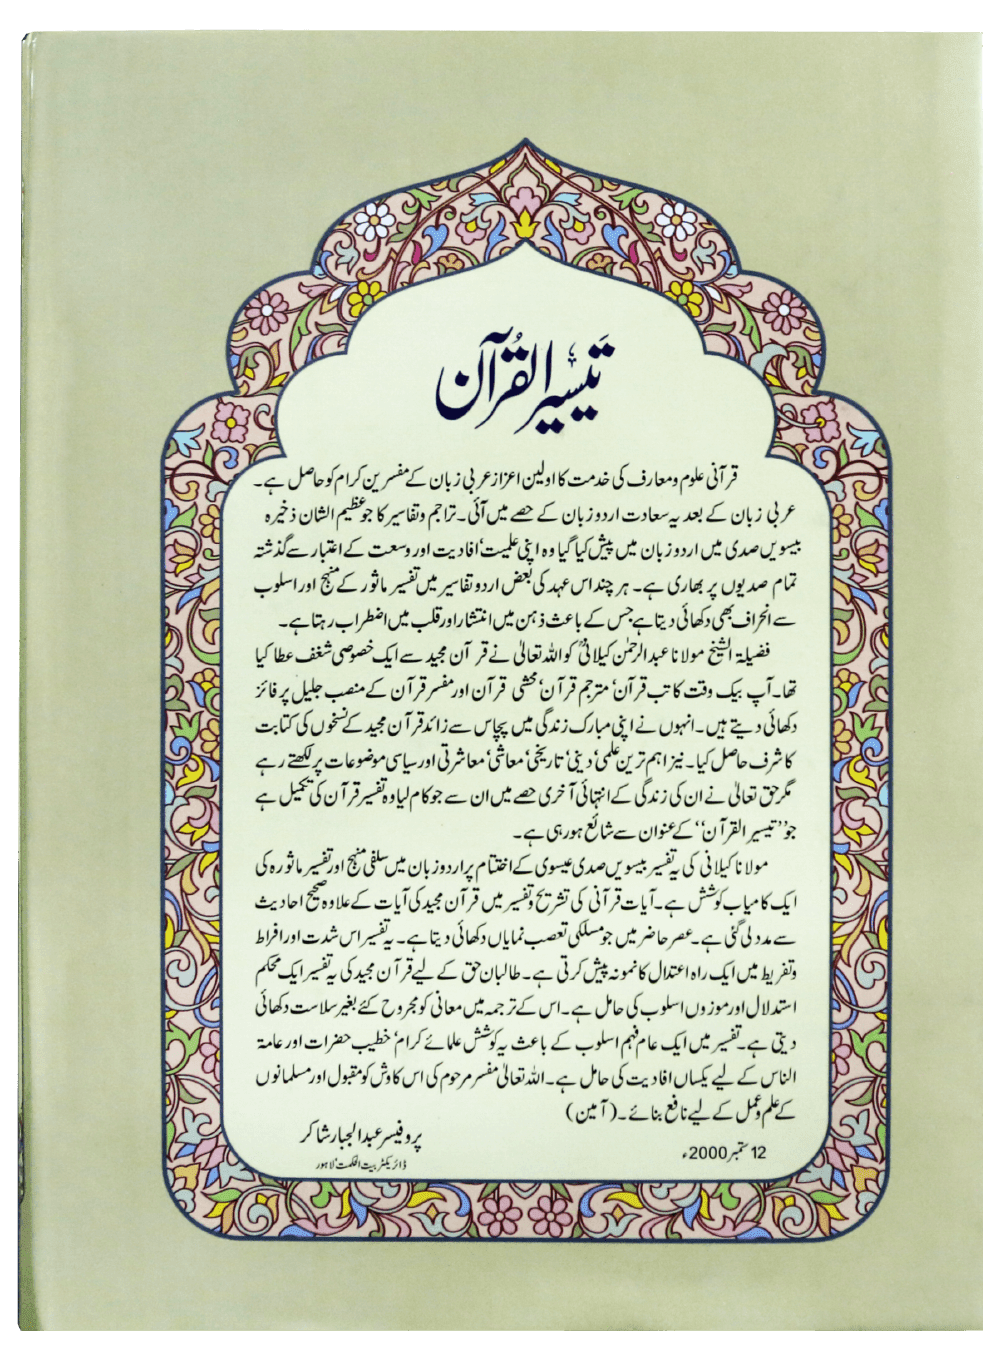 تَیسیر القُرآن
قرآنی علوم و معارف کی خدمت کا اولین اعزاز عربی زبان کے مفسرین کرام کو حاصل ہے۔
عربی زبان کے بعد یہ سعادت اردو زبان کے حصے میں آئی۔ تراجم و تفاسیر کا جو عظیم الشان ذخیرہ
بیسویں صدی میں اردو زبان میں پیش کیا گیا وہ اپنی علمیت‘ افادیت اور وسعت کے اعتبار سے گذشتہ
تمام صدیوں پر بھاری ہے۔ ہر چند اس عہد کی بعض اردو تفاسیر میں تفسیر ماثور کے منہج اور اسلوب
سے انحراف بھی دکھائی دیتا ہے جس کے باعث ذہن میں انتشار اور قلب میں اضطراب رہتا ہے۔
فضیلۃ الشیخ مولانا عبدالرحمٰن کیلانیؒ کو اللہ تعالیٰ نے قرآن مجید سے ایک خصوصی شغف عطا کیا
تھا۔ آپ بیک وقت کاتب قرآن‘ مترجم قرآن‘ محشی قرآن اور مفسر قرآن کے منصب جلیل پر فائز
دکھائی دیتے ہیں۔ انہوں نے اپنی مبارک زندگی میں پچاس سے زائد قرآن مجید کے نسخوں کی کتابت
کا شرف حاصل کیا۔ نیز اہم ترین علمی‘ دینی‘ تاریخی‘ معاشی‘ معاشرتی اور سیاسی موضوعات پر لکھتے رہے
مگر حق تعالیٰ نے ان کی زندگی کے انتہائی آخری حصے میں ان سے جو کام لیا وہ تفسیر قرآن کی تکمیل ہے
جو ’’تیسیر القرآن‘‘ کے عنوان سے شائع ہو رہی ہے۔
مولانا کیلانی کی یہ تفسیر بیسویں صدی عیسوی کے اختتام پر اردو زبان میں سلفی منہج اور تفسیر ماثورہ کی
ایک کامیاب کوشش ہے۔ آیات قرآنی کی تشریح و تفسیر میں قرآن مجید کی آیات کے علاوہ صحیح احادیث
سے مدد لی گئی ہے۔ عصر حاضر میں جو مسلکی تعصب نمایاں دکھائی دیتا ہے۔ یہ تفسیر اس شدت اور افراط
و تفریط میں ایک راہ اعتدال کا نمونہ پیش کرتی ہے۔ طالبان حق کے لیے قرآن مجید کی یہ تفسیر ایک محکم
استدلال اور موزوں اسلوب کی حامل ہے۔ اس کے ترجمہ میں معانی کو مجروح کئے بغیر سلاست دکھائی
دیتی ہے۔ تفسیر میں ایک عام فہم اسلوب کے باعث یہ کوشش علمائے کرام‘ خطیب حضرات اور عامۃ
الناس کے لیے یکساں افادیت کی حامل ہے۔ اللہ تعالیٰ مفسر مرحوم کی اس کاوش کو مقبول اور مسلمانوں
کے علم و عمل کے لیے نافع بنائے۔ (آمین)
پروفیسر عبدالجبار شاکر
12 ستمبر 2000ء
ڈائریکٹر بیت الحکمت‘ لاہور